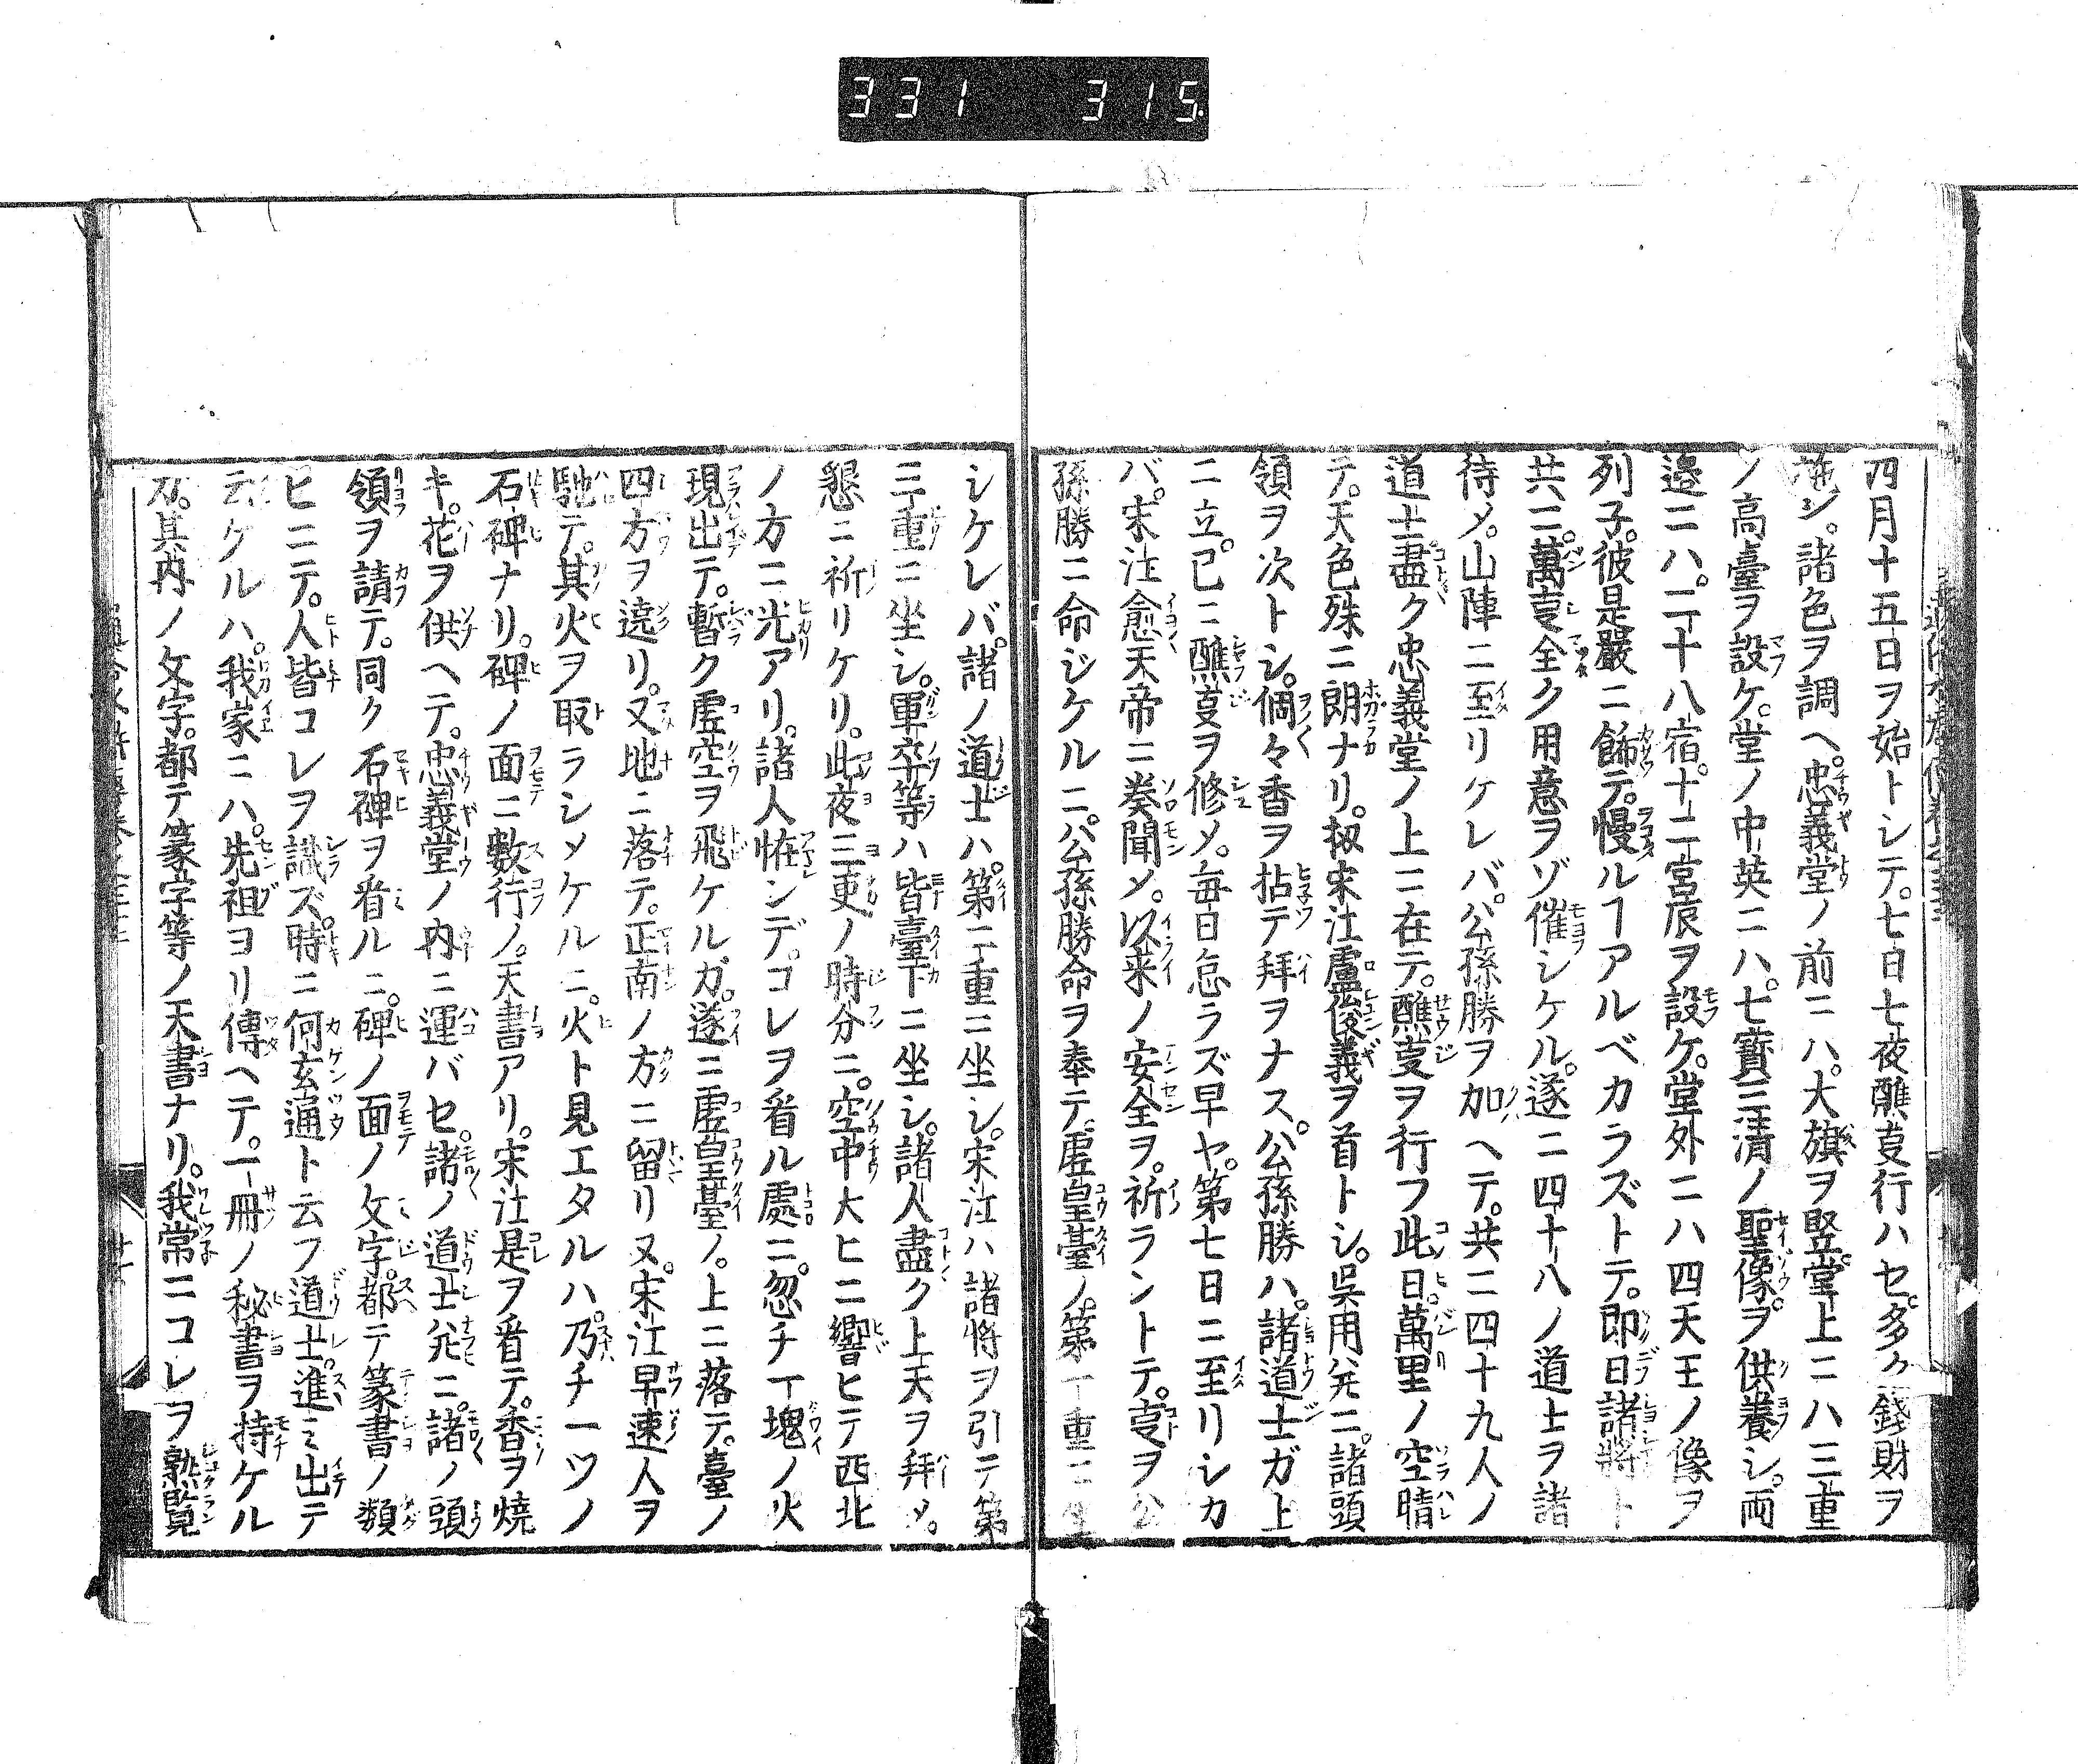 331 315
四月十五日ヲ始トシテ。七日七夜醮叓行ハセ。多ク錢財ヲ
施シ。諸色ヲ調ヘ。忠義堂ノ前ニハ。大旗ヲ竪。堂上ニハ三重
ノ高臺ヲ設ケ。堂ノ中央ニハ。七寳三清ノ聖像ヲ供養シ。両
邉ニハ。二十八宿。十二宮辰ヲ設ケ。堂外ニハ四天王ノ像ヲ
列子。彼是嚴ニ餝テ。慢ルヿアルベカラズトテ。即日諸將ト
共ニ。萬叓全ク用意ヲゾ催シケル。遂ニ四十八ノ道士ヲ請
待メ。山陣ニ至リケレバ。公孫勝ヲ加ヘテ。共ニ四十九人ノ
道士盡ク忠義堂ノ上ニ在テ。醮叓ヲ行フ此日。萬里ノ空晴
テ。天色殊ニ朗ナリ。扨宋江盧俊義ヲ首トシ。呉用先ニ。諸頭
領ヲ次トシ。個々香ヲ拈テ拜ヲナス。公孫勝ハ。諸道士ガ上
ニ立。已ニ醮叓ヲ修メ。毎日怠ラズ早ヤ。第七日ニ至リシカ
バ。宋江愈天帝ニ奏聞メ。以来ノ安全ヲ。祈ラントテ。叓ヲ公
孫勝ニ命ジケルニ。公孫勝命ヲ奉テ。虚皇臺ノ。第一重ニ坐
シケレバ。諸ノ道士ハ。第二重ニ坐シ。宋江ハ諸將ヲ引テ第
三重ニ坐シ。軍卒等ハ皆臺下ニ坐シ。諸人盡ク上天ヲ拜メ。
懇ニ祈リケリ。此夜三更ノ時分ニ。空中大ヒニ響ヒテ西北
ノ方ニ光アリ。諸人恠ンデ。コレヲ看ル處ニ。忽チ一塊ノ火
現出テ。暫ク虚空ヲ飛ケルガ。遂ニ虚皇臺ノ。上ニ落テ。臺ノ
四方ヲ遶リ。又地ニ落テ。正南ノ方ニ留リヌ。宋江早速人ヲ
馳テ。其火ヲ取ラシメケルニ。火ト見エタルハ。乃チ一ツノ
石碑ナリ。碑ノ面ニ數行ノ。天書アリ。宋江是ヲ看テ。香ヲ焼
キ。花ヲ供ヘテ。忠義堂ノ内ニ運バセ。諸ノ道士先ニ。諸ノ頭
領ヲ請テ。同ク石碑ヲ看ルニ。碑ノ面ノ文字。都テ篆書ノ類
ヒニテ。人皆コレヲ識ズ。時ニ何玄通ト云フ道士。進ミ出テ
云ケルハ。我家ニハ。先祖ヨリ傳ヘテ。一冊ノ秘書ヲ持ケル
ガ。其内ノ文字。都テ篆字等ノ天書ナリ。我常ニコレヲ熟覧